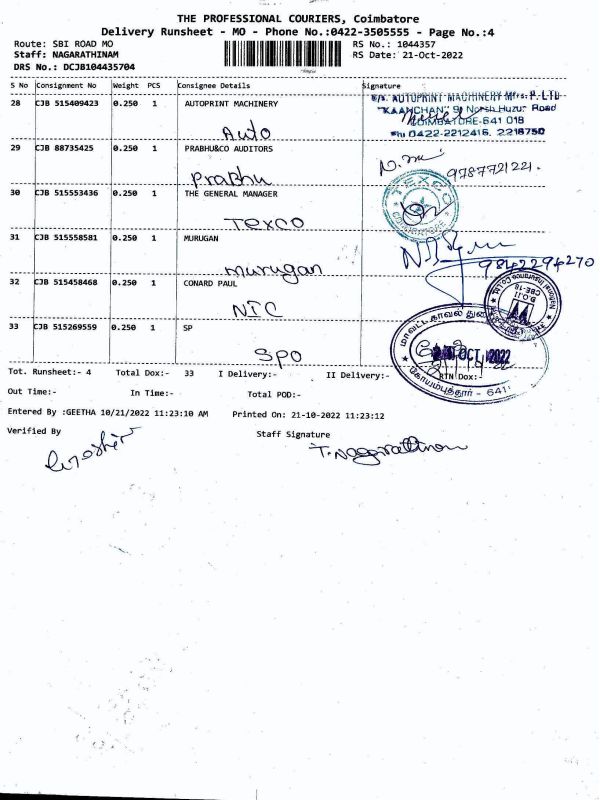 THE PROFESSIONAL COURIERS, Coimbatore
Delivery Runsheet - MO - Phone No.:0422-3505555 - Page No.:4
Route: SBI ROAD MO RS No.: 1044357
Staff: NAGARATHINAM RS Date: 21-Oct-2022
DRS No.: DCJB104435704
S No Consignment No Weight PCS Consignee Details Signature
28 CJB 515409423 0.250 1 AUTOPRINT MACHINERY
Auto
M/s. AUTOPRINT MACHINERY Mfrs. P. LTD
"KAANCHAN" 9, North Huzur Road
COIMBATORE-641 018
Ph: 0422-2212416, 2216750
29 CJB 88735425 0.250 1 PRABHU&CO AUDITORS
Prabhu
9787721221.
30 CJB 515553436 0.250 1 THE GENERAL MANAGER
Texco
TEXCO
COIMBATORE
31 CJB 515558581 0.250 1 MURUGAN
murugan
9842294270
32 CJB 515458468 0.250 1 CONARD PAUL
NIC
National Insurance Co Ltd.
D.O.II
CBE-18
33 CJB 515269559 0.250 1 SP
SPO
OCT 2022
கோயம்புத்தூர் - 641
Tot. Runsheet:- 4 Total Dox:- 33 I Delivery:- II Delivery:- RTN Dox:-
Out Time:- In Time:- Total POD:-
Entered By :GEETHA 10/21/2022 11:23:10 AM Printed On: 21-10-2022 11:23:12
Verified By Staff Signature
T. Nagarathinam